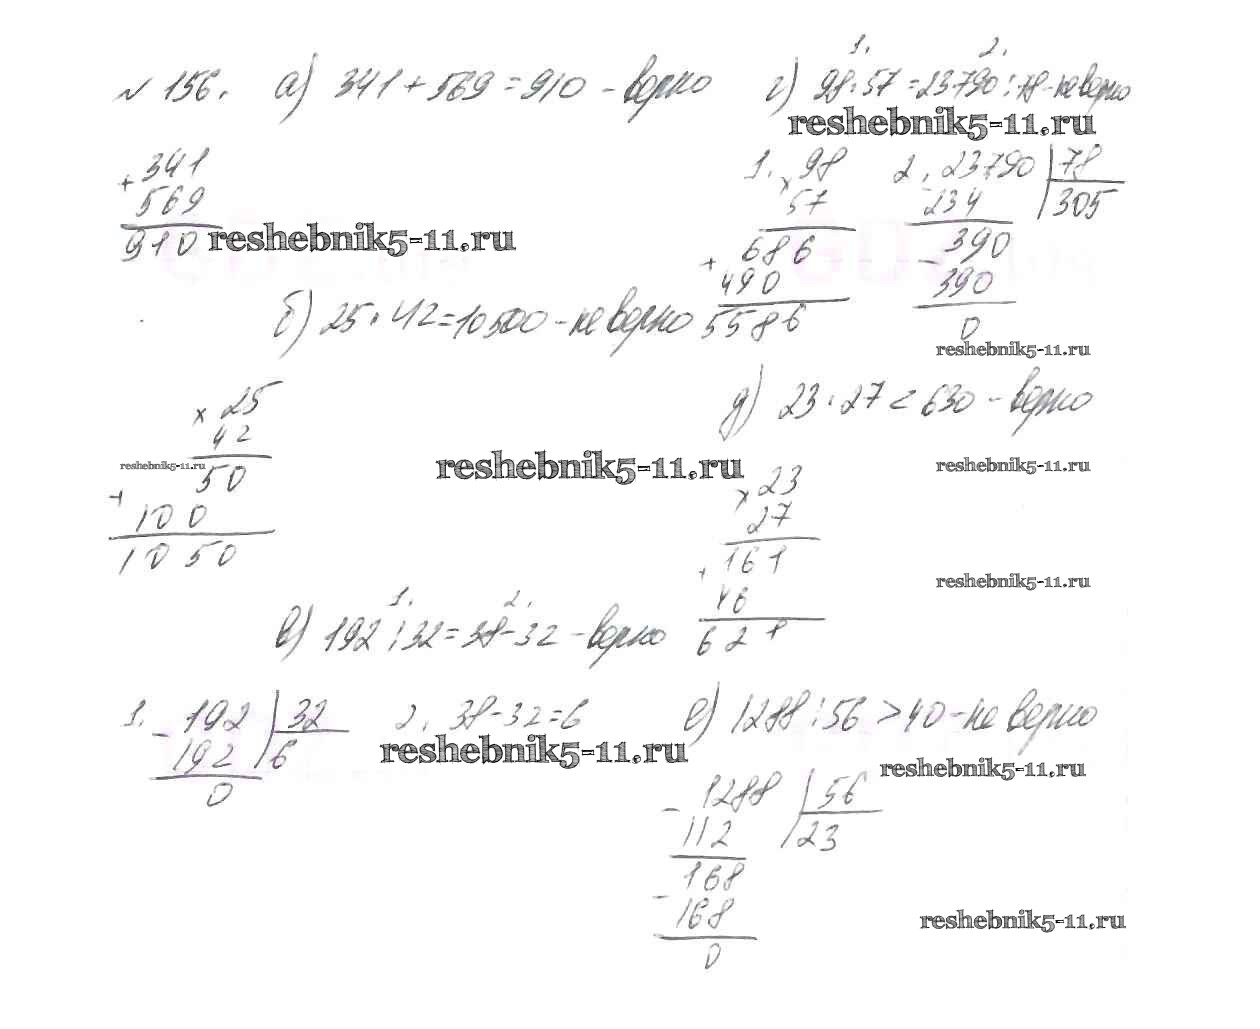 №156. а) 341+569=910 - верно
+341
569
910
reshebnik5-11.ru
б) 25·42=10500 - не верно
×25
42
reshebnik5-11.ru
50
+
100
1050
reshebnik5-11.ru
1. 2.
в) 192:32=38-32 - верно
1. -192 | 32
192 | 6
0
2. 38-32=6
reshebnik5-11.ru
1. 2.
г) 98·57=23790:78 - не верно
reshebnik5-11.ru
1. ×98
57
686
+
490
5586
2. 23790 | 78
-234 | 305
390
-390
0
reshebnik5-11.ru
д) 23·27<630 - верно
reshebnik5-11.ru
×23
27
161
+
46
621
reshebnik5-11.ru
е) 1288:56>40 - не верно
reshebnik5-11.ru
-1288 | 56
112 | 23
168
-168
0
reshebnik5-11.ru